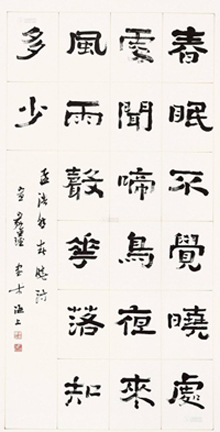 春眠不覺曉處
處聞啼鳥夜來
風雨聲華落知
多少
孟浩然春曉詩
海上